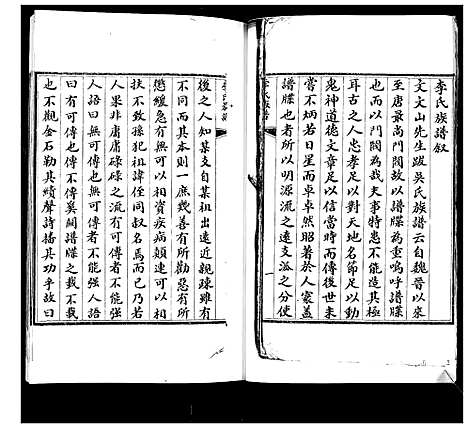 李氏族譜叙
文文山先生跋吳氏族譜云自魏晉以來
至唐最尚門閥故以譜牒為重嗚呼譜牒
也而以門閥為哉夫事特患不能造其極
耳古之人忠孝足以對天地名節足以動
鬼神道德文章足以信當時而傳後世未
嘗不炳若日星而卓卓然照著於人寰蓋
譜牒也者所以明源流之遠支派之分使
後之人知某支自某祖出遠近親疎雖有
不同而其本則一庶幾善有所勸惡有所
懲緩急可以相資疾病顛連可以相
扶不致孫犯祖諱侄同叔名焉而已乃若
人果非庸庸碌碌之流有可傳者不能禁
人語曰無可傳也無可傳者不能强人語
曰有可傳也不傳奚闕譜牒之載不載
也不觀金石勒其績聲詩播其功乎故曰